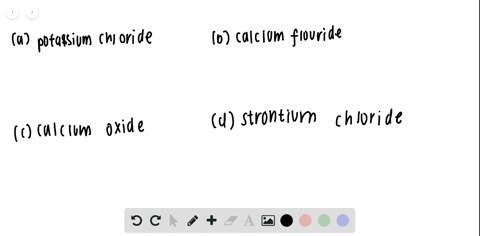 (a) potassium chloride
(b) calcium flouride
(c) calcium oxide
(d) strontium chloride